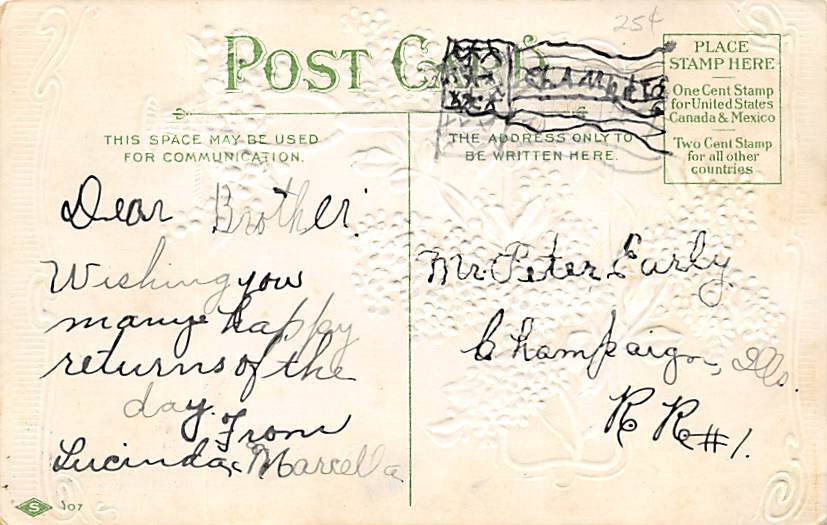 25¢
POST CARD
PLACE
STAMP HERE
One Cent Stamp
for United States
Canada & Mexico
Two Cent Stamp
for all other
countries
THIS SPACE MAY BE USED
FOR COMMUNICATION.
THE ADDRESS ONLY TO
BE WRITTEN HERE.
Dear Brother.
Wishing you
manye happy
returns of the
day.
From
Lucinda & Marcella
Mr. Peter Early
Champaign, Ills.
R R #1.
S 107